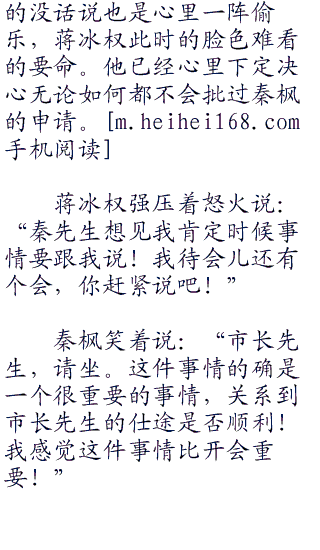 的没话说也是心里一阵偷
乐，蒋冰权此时的脸色难看
的要命。他已经心里下定决
心无论如何都不会批过秦枫
的申请。[m.heihei168.com
手机阅读]
蒋冰权强压着怒火说：
“秦先生想见我肯定时候事
情要跟我说！我待会儿还有
个会，你赶紧说吧！”
秦枫笑着说：“市长先
生，请坐。这件事情的确是
一个很重要的事情，关系到
市长先生的仕途是否顺利！
我感觉这件事情比开会重
要！”